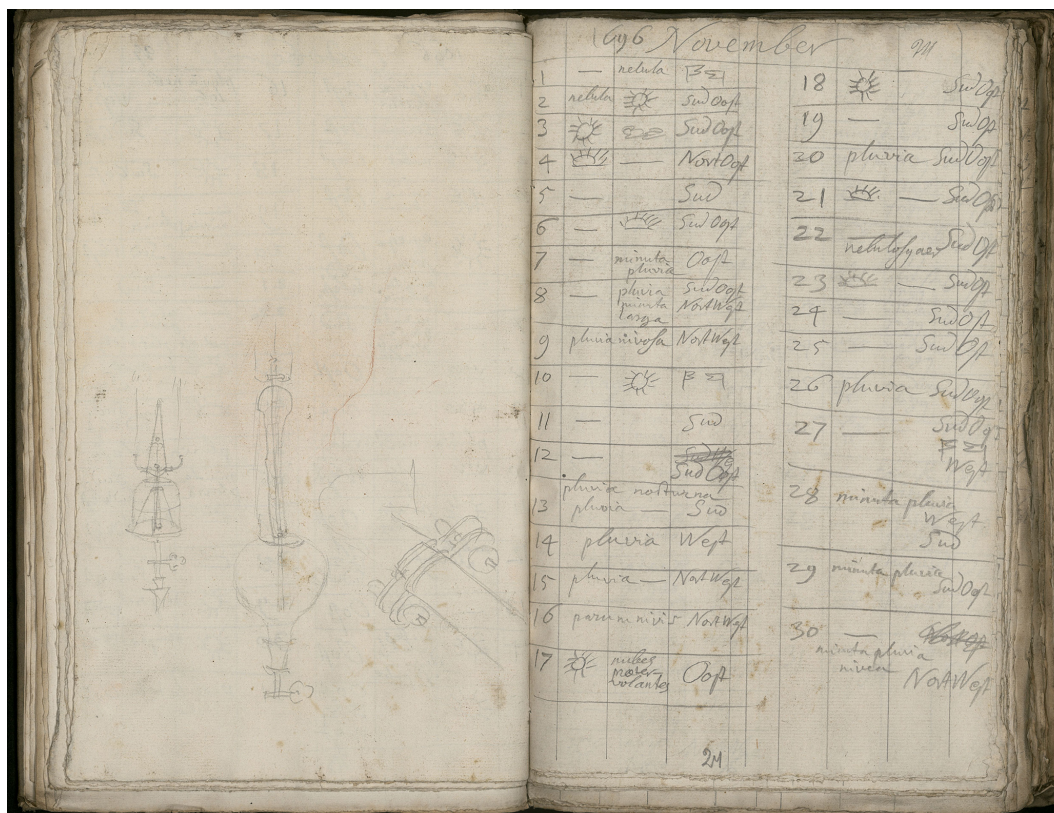 1696 November
1 — nebula
2 nebula Sud Oost
3 Sud Oost
4 — Nort Oost
5 — Sud
6 — Sud Oost
7 — minuta Oost
pluvia
8 — pluvia Sud Oost
minuta Nort West
larga
9 pluvia nivosa Nort West
10 —
11 — Sud
12 —
Sud Oost
pluvia nocturna
13 pluvia — Sud
14 pluvia West
15 pluvia — Nort West
16 parum nivis Nort West
17 nubes Oost
volantes
18 Sud Ost
19 — Sud Ost
20 pluvia Sud Oost
21 — Sud Ost
22 — Sud Ost
23 — Sud Ost
24 — Sud Ost
25 — Sud Ost
26 pluvia Sud Oost
27 — Sud Ost
West
28 minuta pluvia
West
Sud
29 minuta pluvia
Sud Oost
30 —
minuta pluvia
nivea
Nort West